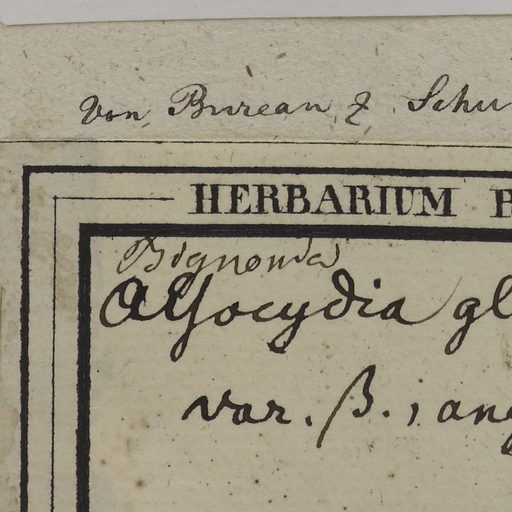 Von Bureau & Schu
HERBARIUM
Bignonia
Alsocydia gl
var. β., ang